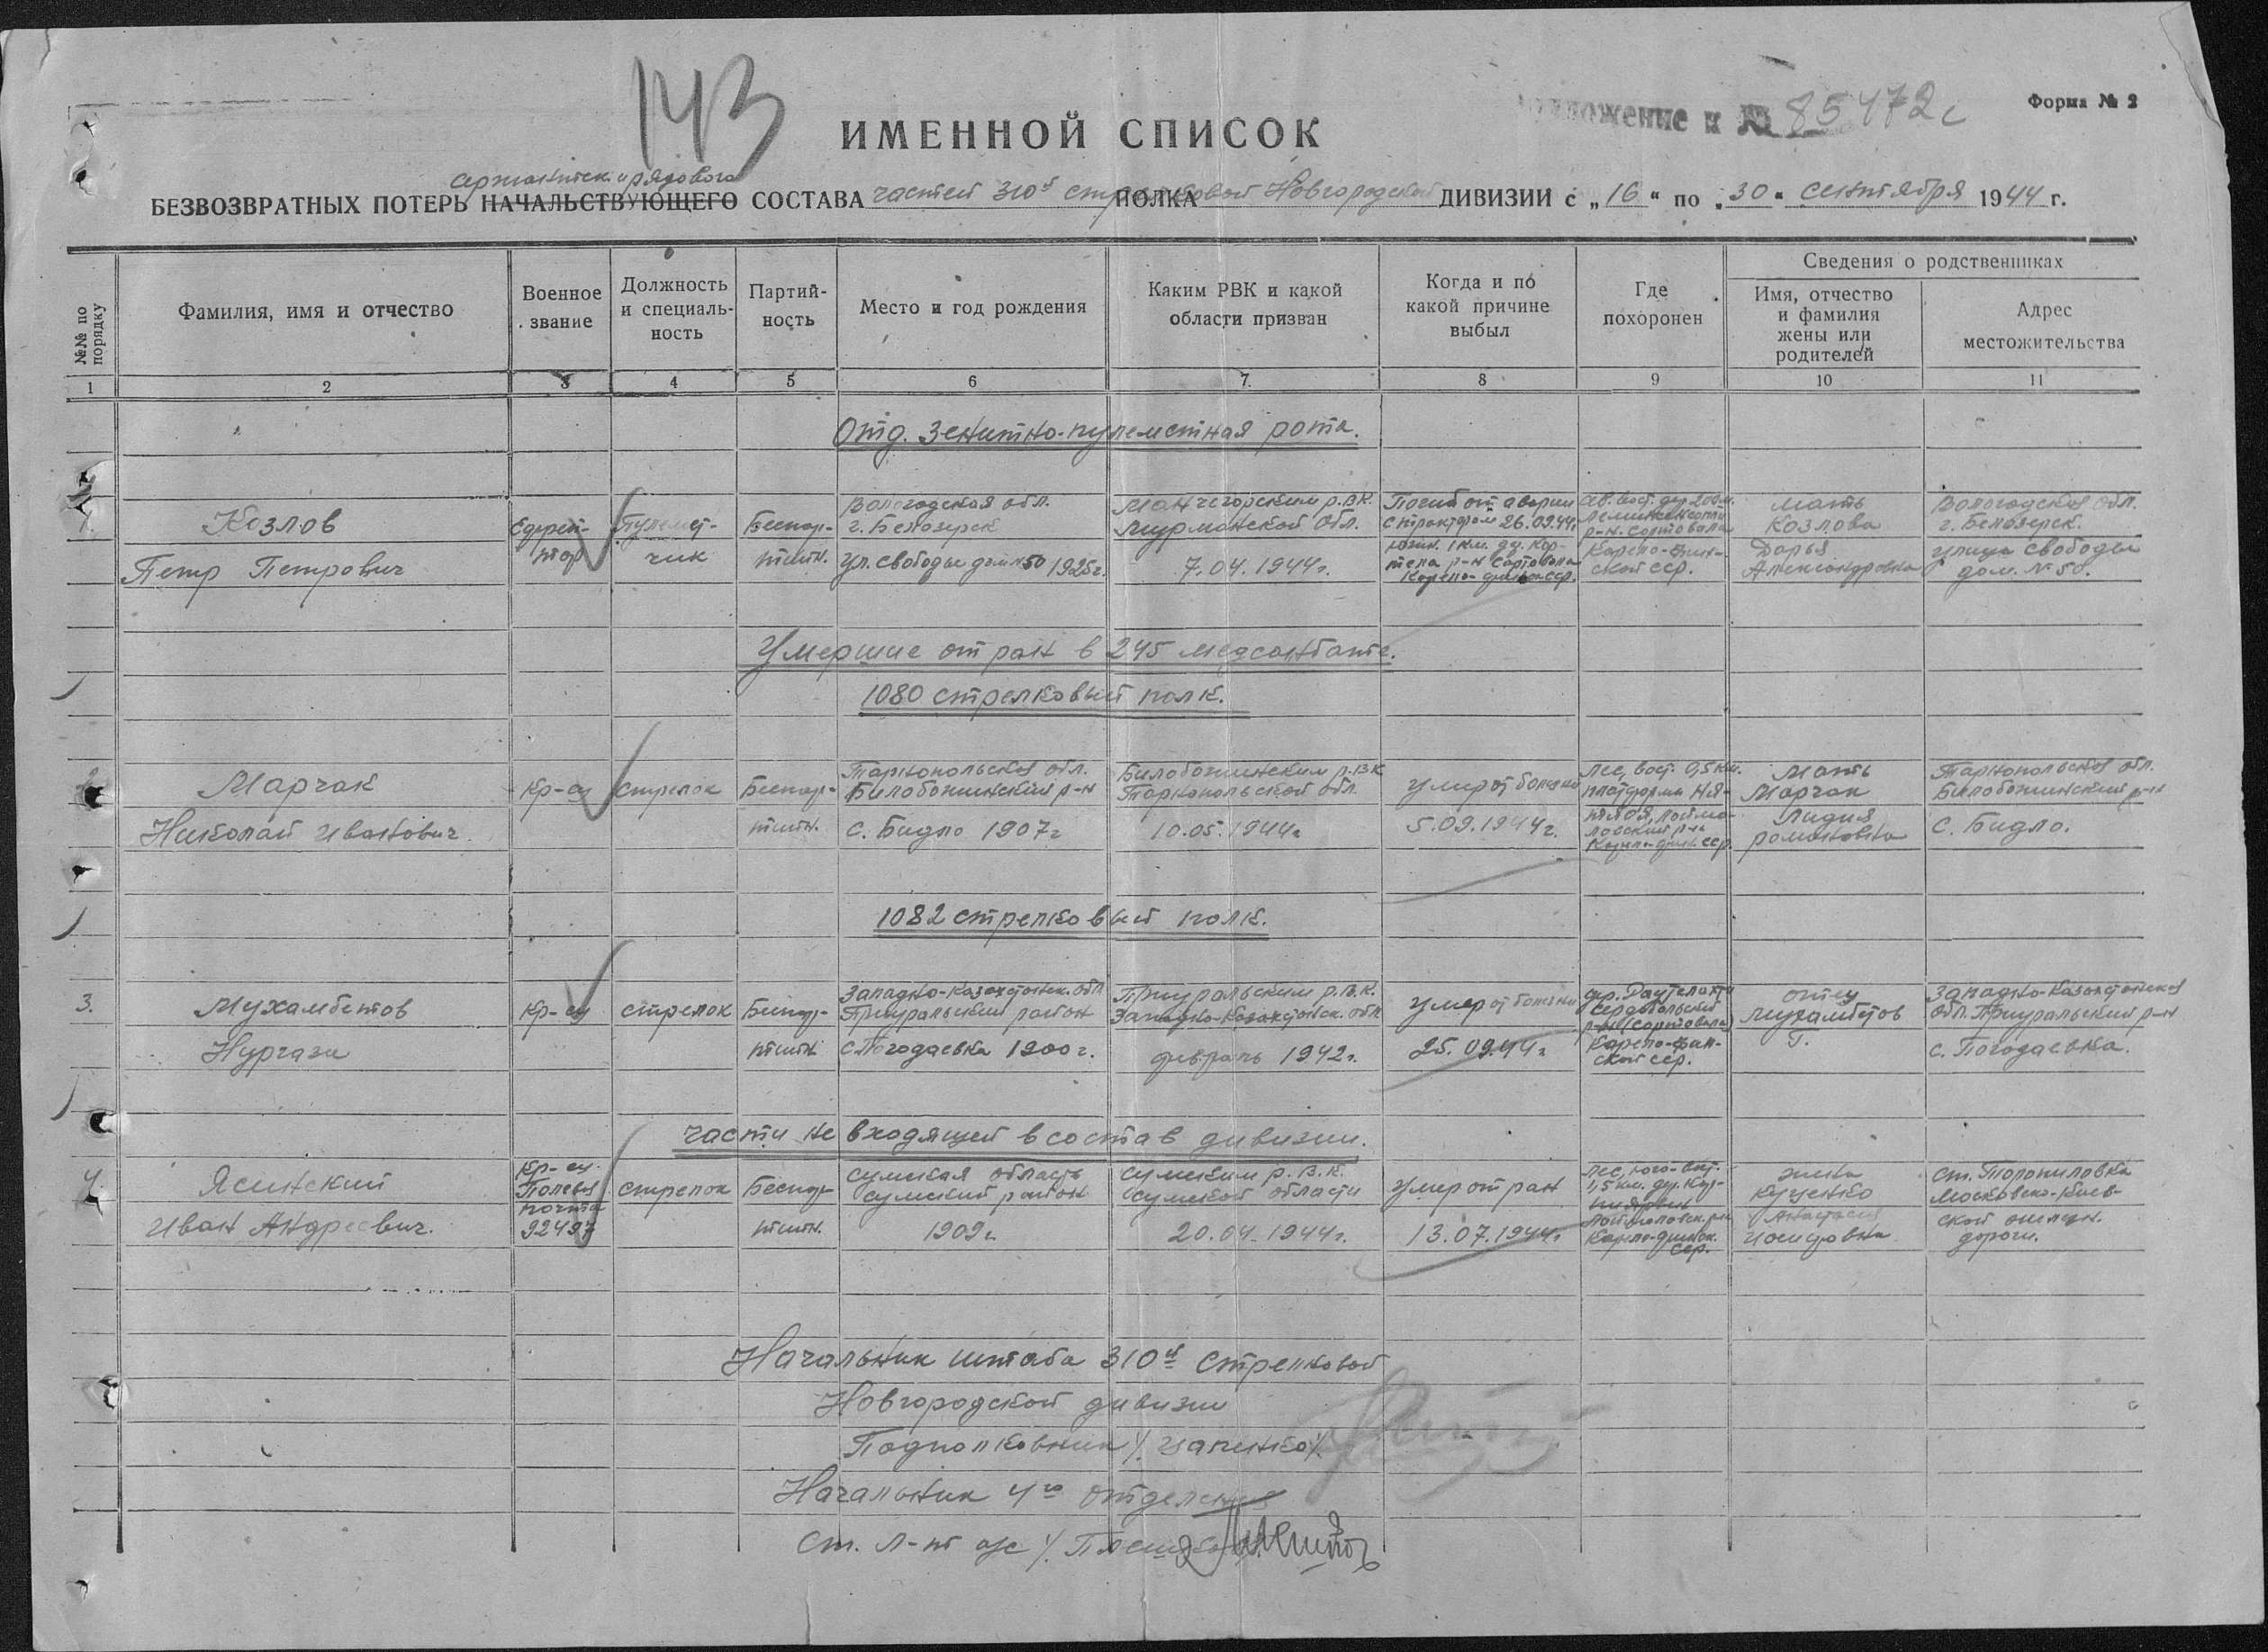 143
Приложение к № 85472с
Форма № 2
ИМЕННОЙ СПИСОК
сержантск. и рядового
БЕЗВОЗВРАТНЫХ ПОТЕРЬ НАЧАЛЬСТВУЮЩЕГО СОСТАВА частей 310й стрелковой Новгородской ПОЛКА ДИВИЗИИ с „16“ по „30“ сентября 1944 г.
№№ по порядку
Фамилия, имя и отчество
Военное звание
Должность и специаль-ность
Партий-ность
Место и год рождения
Каким РВК и какой области призван
Когда и по какой причине выбыл
Где похоронен
Сведения о родственниках
Имя, отчество и фамилия жены или родителей
Адрес местожительства
1 2 3 4 5 6 7. 8 9 10 11
Отд. зенитно-пулеметная рота.
1.
Козлов
Петр Петрович
Ефрей-
тор
Пулемет-
чик
Беспар-
тийн.
Вологодская обл.
г. Белозерск
ул. Свободы дом №50 1925г.
Мончегорским р.В.К.
Мурманской обл.
7.04.1944г.
Погиб от аварии
с трактором 26.09.44г.
южн. 1 км. де. Кор-
тела р-н Сортовала
Карело-финск ССР.
Сев. вост. дер. 200 м.
р-н. Сортовала
Карело-фин-
ской ССР.
Мать
Козлова
Дарья
Александровна
Вологодская обл.
г. Белозерск.
улица Свободы
дом. № 50.
Умершие от ран в 245 медсанбате.
1080 стрелковый полк.
2.
Марчак
Николай Иванович.
Кр-ец
стрелок
Беспар-
тийн.
Тарнопольская обл.
Билобожинский р-н
с. Бидло 1907г
Билобожинским р.В.К
Тарнопольской обл.
10.05.1944г
Умер от болезни
5.09.1944г.
Лес, вост. 0,5 км.
платформы Ня-
Карело-фин. ССР.
Мать
Марчак
Лидия
Романовна
Тарнопольская обл.
Билобожинский р-н
с. Бидло.
1082 стрелковый полк.
3.
Мухамбетов
Нургази
Кр-ец
стрелок
Беспар-
тийн
Западно-Казахстанск. обл
Приуральский район
с. Погодаевка 1900г.
Приуральским р.В.К.
Западно-Казахстанск. обл
февраль 1942г.
Умер от болезни
25.09.44г
др. Раутелахти
Сердобольский
р-н (Сортовала)
Карело-фин-
ской ССР.
отец
Мухамбетов
Г.
Западно-Казахстанская
обл. Приуральский р-н
с. Погодаевка.
Части не входящей в состав дивизии.
4.
Ясинский
Иван Андреевич.
Кр-ец.
Полевая
почта
92497
стрелок
Беспар-
тийн.
Сумская область
Сумский район
1909г.
Сумским р.В.К.
Сумской области
20.04.1944г.
Умер от ран
13.07.1944г
Лес, юго-вост.
1,5 км. де.
Карело-финск.
ССР.
жена
Куценко
Анастасия
ст. Торопиловка
Московско-Киев-
ской
дороги.
Начальник штаба 310й стрелковой
Новгородской дивизии
Подполковник
Начальник 4го отделения
ст. л-нт а/с